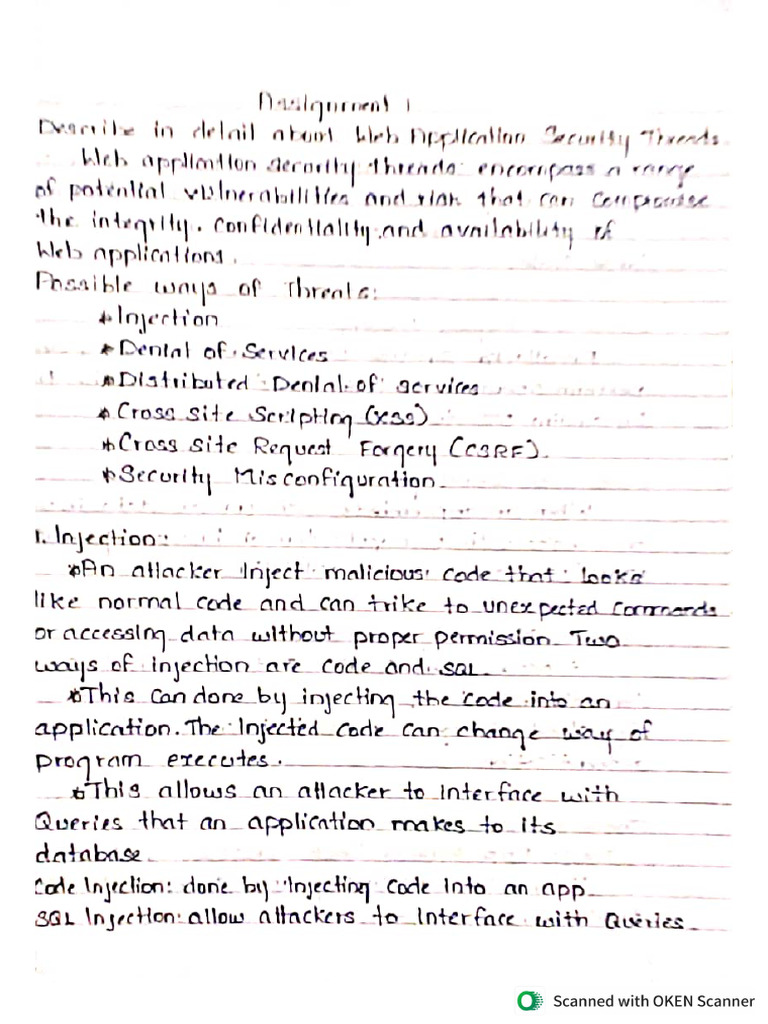 Assignment 1
Describe in detail about Web Application Security Threads
Web application security threads encompass a range
of potential vulnerabilities and risk that can compromise
the integrity, confidentiality and availability of
Web applications.
Possible ways of Threats:
* Injection
* Denial of Services
* Distributed Denial of services
* Cross site Scripting (XSS)
* Cross site Request Forgery (CSRF)
* Security Misconfiguration
1. Injection:
* An attacker inject malicious code that looks
like normal code and can trike to unexpected commands
or accessing data without proper permission. Two
ways of injection are code and SQL
* This can done by injecting the code into an
application. The injected code can change way of
program executes.
* This allows an attacker to interface with
Queries that an application makes to its
database
Code Injection: done by injecting code into an app
SQL Injection: allow attackers to interface with Queries
Scanned with OKEN Scanner